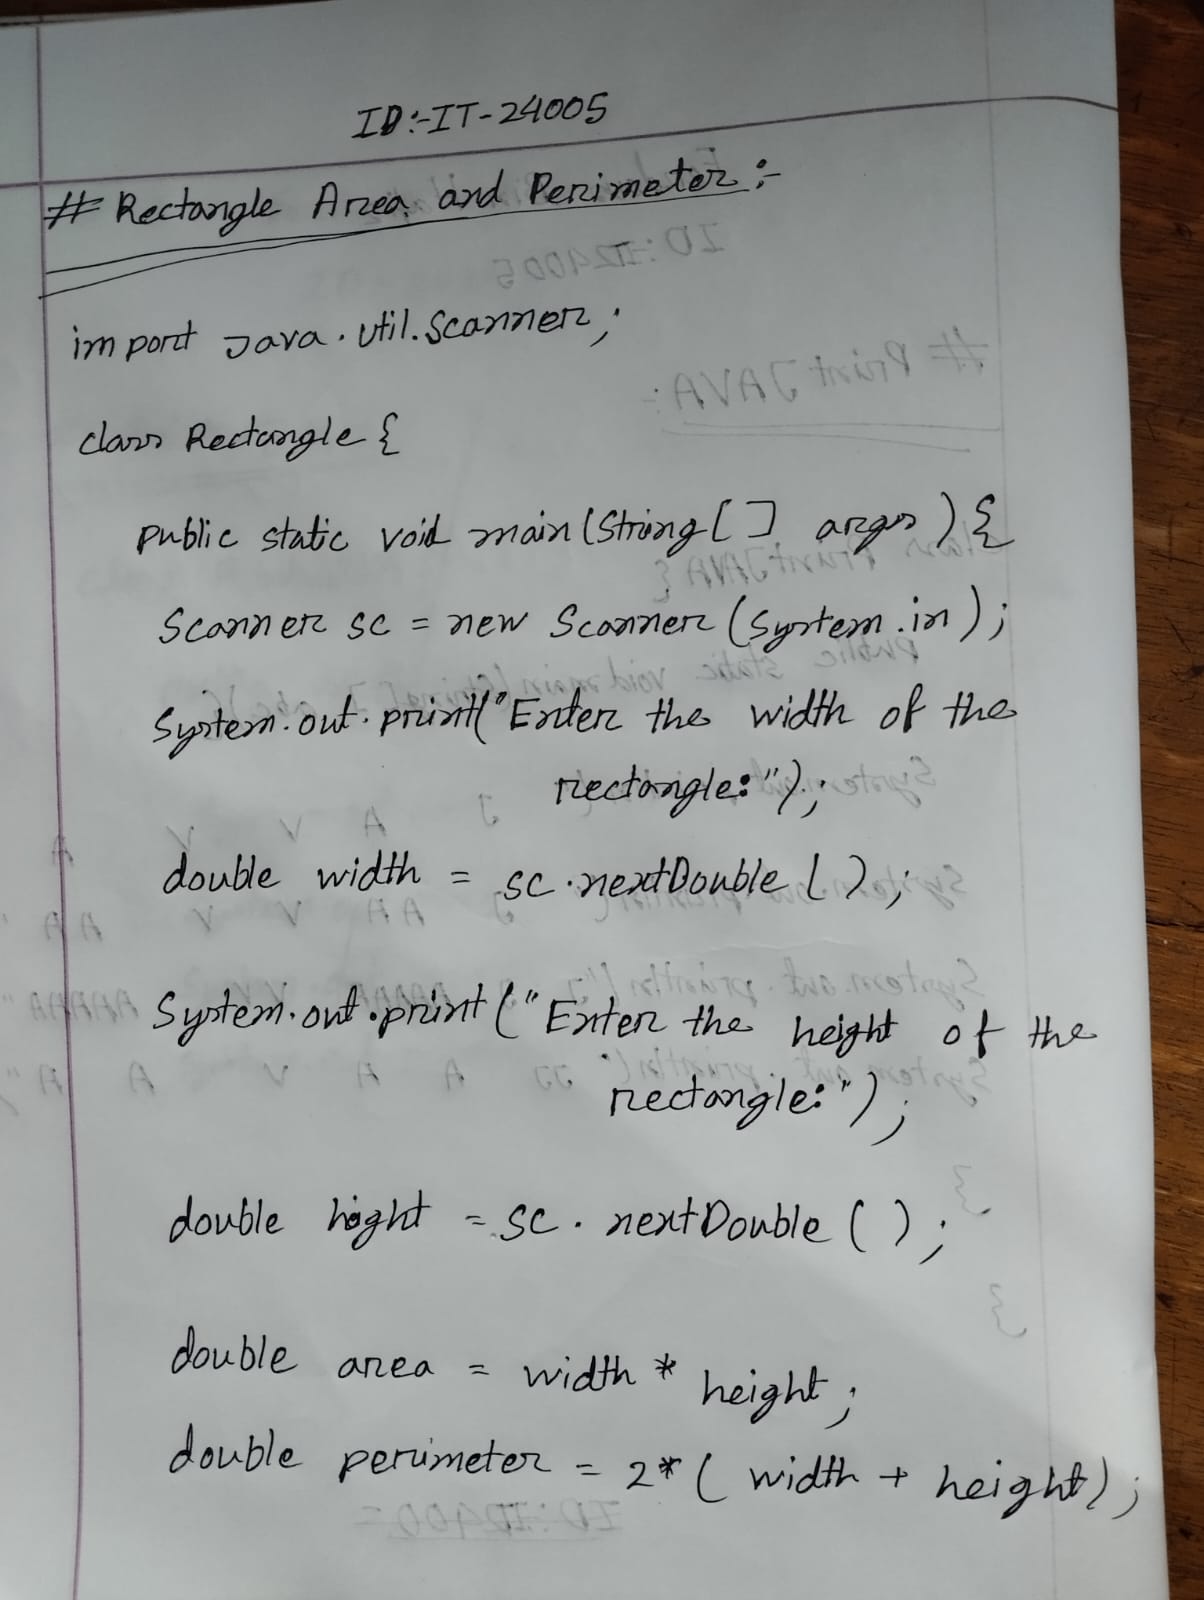 ID:-IT-24005
# Rectangle Area and Perimeter:-
import java.util.Scanner;
class Rectangle {
public static void main(String[] args){
Scanner sc = new Scanner(System.in);
System.out.print("Enter the width of the
rectangle:");
double width = sc.nextDouble();
System.out.print("Enter the height of the
rectangle:");
double hight = sc.nextDouble();
double area = width * height;
double perimeter = 2*( width + height);